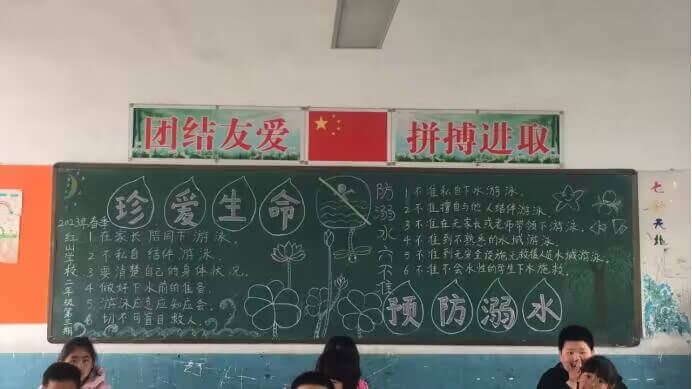 团结友爱
拼搏进取
珍爱生命
2023年春季
红山学校二年级第三期
1 在家长陪同下游泳.
2 不私自结伴游泳.
3 要清楚自己的身体状况.
4 做好下水前的准备.
5 游泳应急应知应会.
6 切不可盲目救人.
防溺水六不准
1 不准私自下水游泳.
2 不准擅自与他人结伴游泳.
3 不准在无家长或老师带领下游泳.
4 不准到不熟悉的水域游泳.
5 不准到无安全设施无救援人员水域游泳.
6 不准不会水性的学生下水施救.
预防溺水
七彩
天地